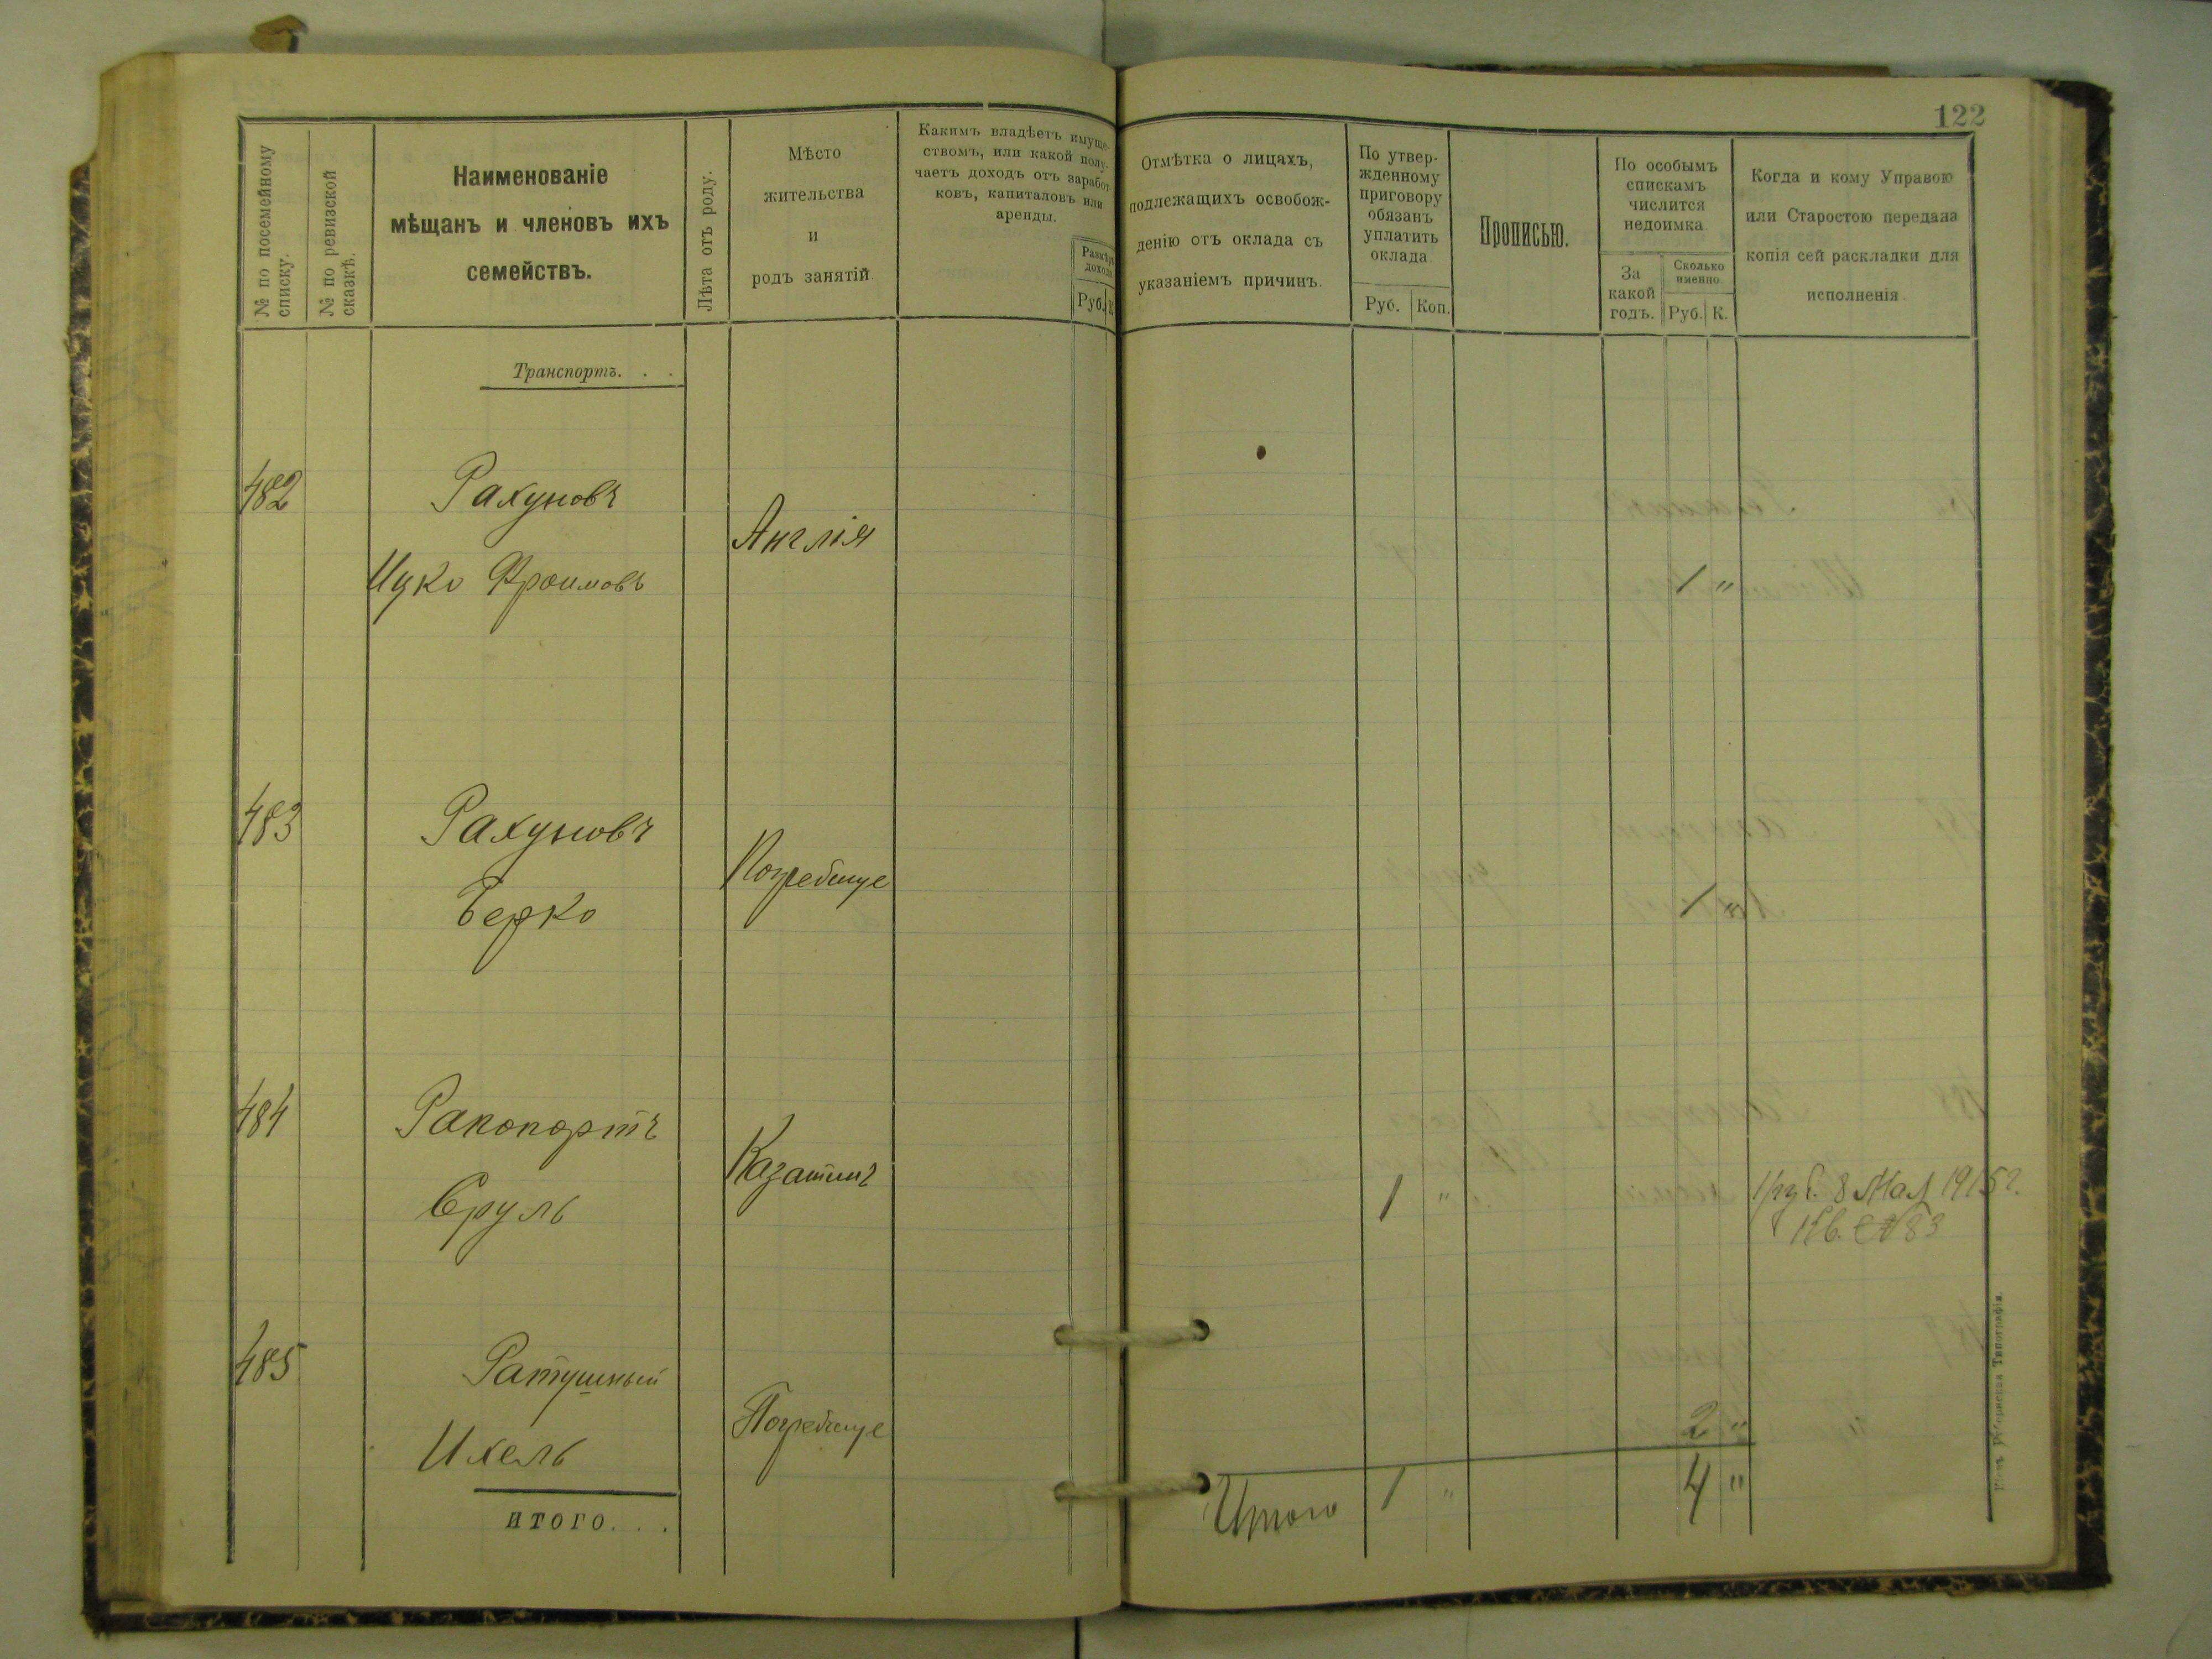 122
№ по посемейному
списку.
№ по ревизской
сказкѣ.
Наименованіе
мѣщанъ и членовъ ихъ
семействъ.
Лѣта отъ роду.
Мѣсто
жительства
и
родъ занятій.
Какимъ владѣетъ имуще-
ствомъ, или какой полу-
чаетъ доходъ отъ заработ-
ковъ, капиталовъ или
аренды.
Размѣръ
дохода.
Руб. К
Отмѣтка о лицахъ,
подлежащихъ освобож-
денію отъ оклада съ
указаніемъ причинъ.
По утвер-
жденному
приговору
обязанъ
уплатить
оклада
Руб. Коп.
Прописью.
По особымъ
спискамъ
числится
недоимка.
За
какой
годъ.
Сколько
именно.
Руб. К.
Когда и кому Управою
или Старостою передана
копія сей раскладки для
исполненія.
Транспортъ. . .
482
Рахуновъ
Англія
Ицко Фроимовъ
1 "
483
Рахуновъ
Погребище
Берко
1 "
484
Рапопортъ
Казатинъ
Сруль
1 "
1 руб. 8 Мая 1915 г.
Кв. № 83
485
Ратушный
Погребище
Ихель
2 "
итого. . .
Итого 1 " 4 "